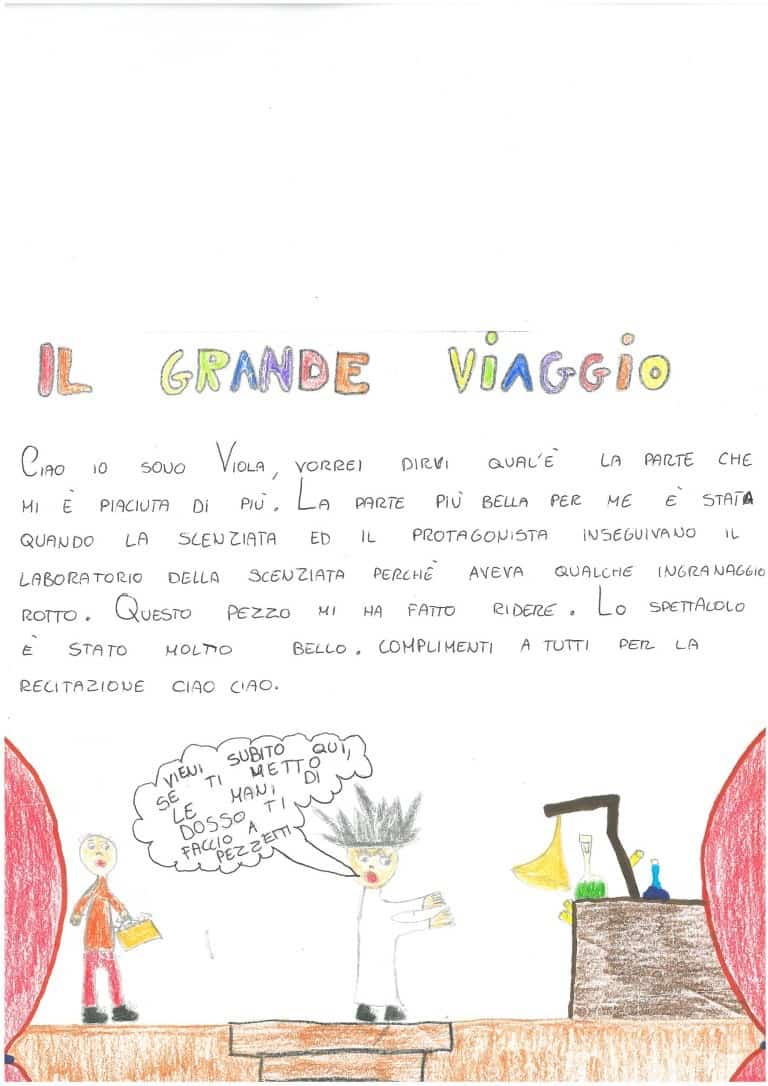 IL GRANDE VIAGGIO
CIAO IO SONO VIOLA, VORREI DIRVI QUAL'È LA PARTE CHE
MI È PIACIUTA DI PIÙ. LA PARTE PIÙ BELLA PER ME È STATA
QUANDO LA SCENZIATA ED IL PROTAGONISTA INSEGUIVANO IL
LABORATORIO DELLA SCENZIATA PERCHÈ AVEVA QUALCHE INGRANAGGIO
ROTTO. QUESTO PEZZO MI HA FATTO RIDERE. LO SPETTACOLO
È STATO MOLTO BELLO. COMPLIMENTI A TUTTI PER LA
RECITAZIONE CIAO CIAO.
VIENI SUBITO QUI,
SE TI METTO
LE MANI DI
DOSSO TI
FACCIO A
PEZZETTI